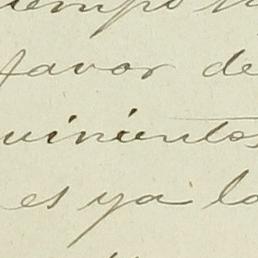 tiempo
favor de
quinientos
es ya lo